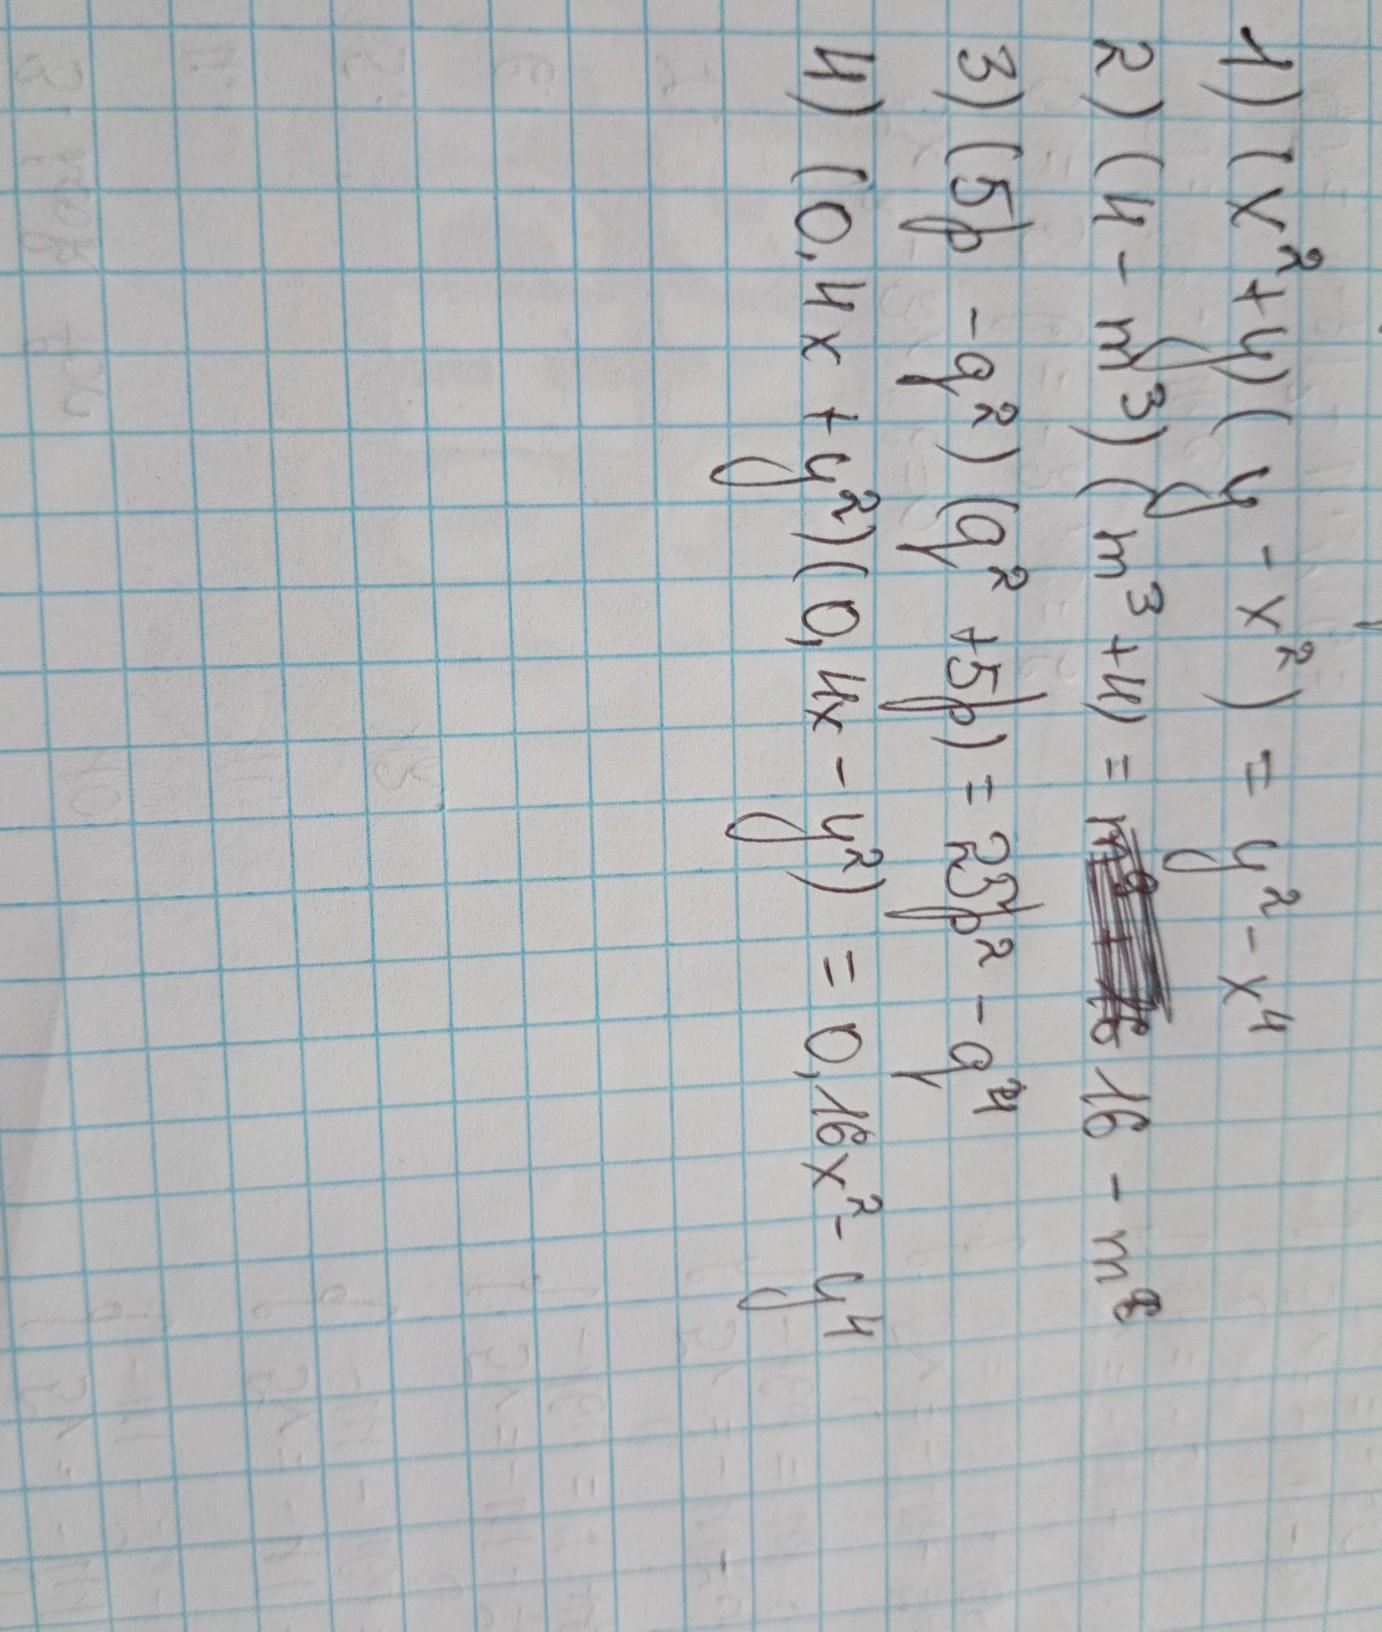 1) (x²+y)(y - x²) = y² - x⁴
2) (4 - m³)(m³+4) = 16 - m
3) (5p - q²)(q² +5p) = 25p² - q⁴
4) (0,4x + y²)(0,4x - y²) = 0,16x² - y⁴